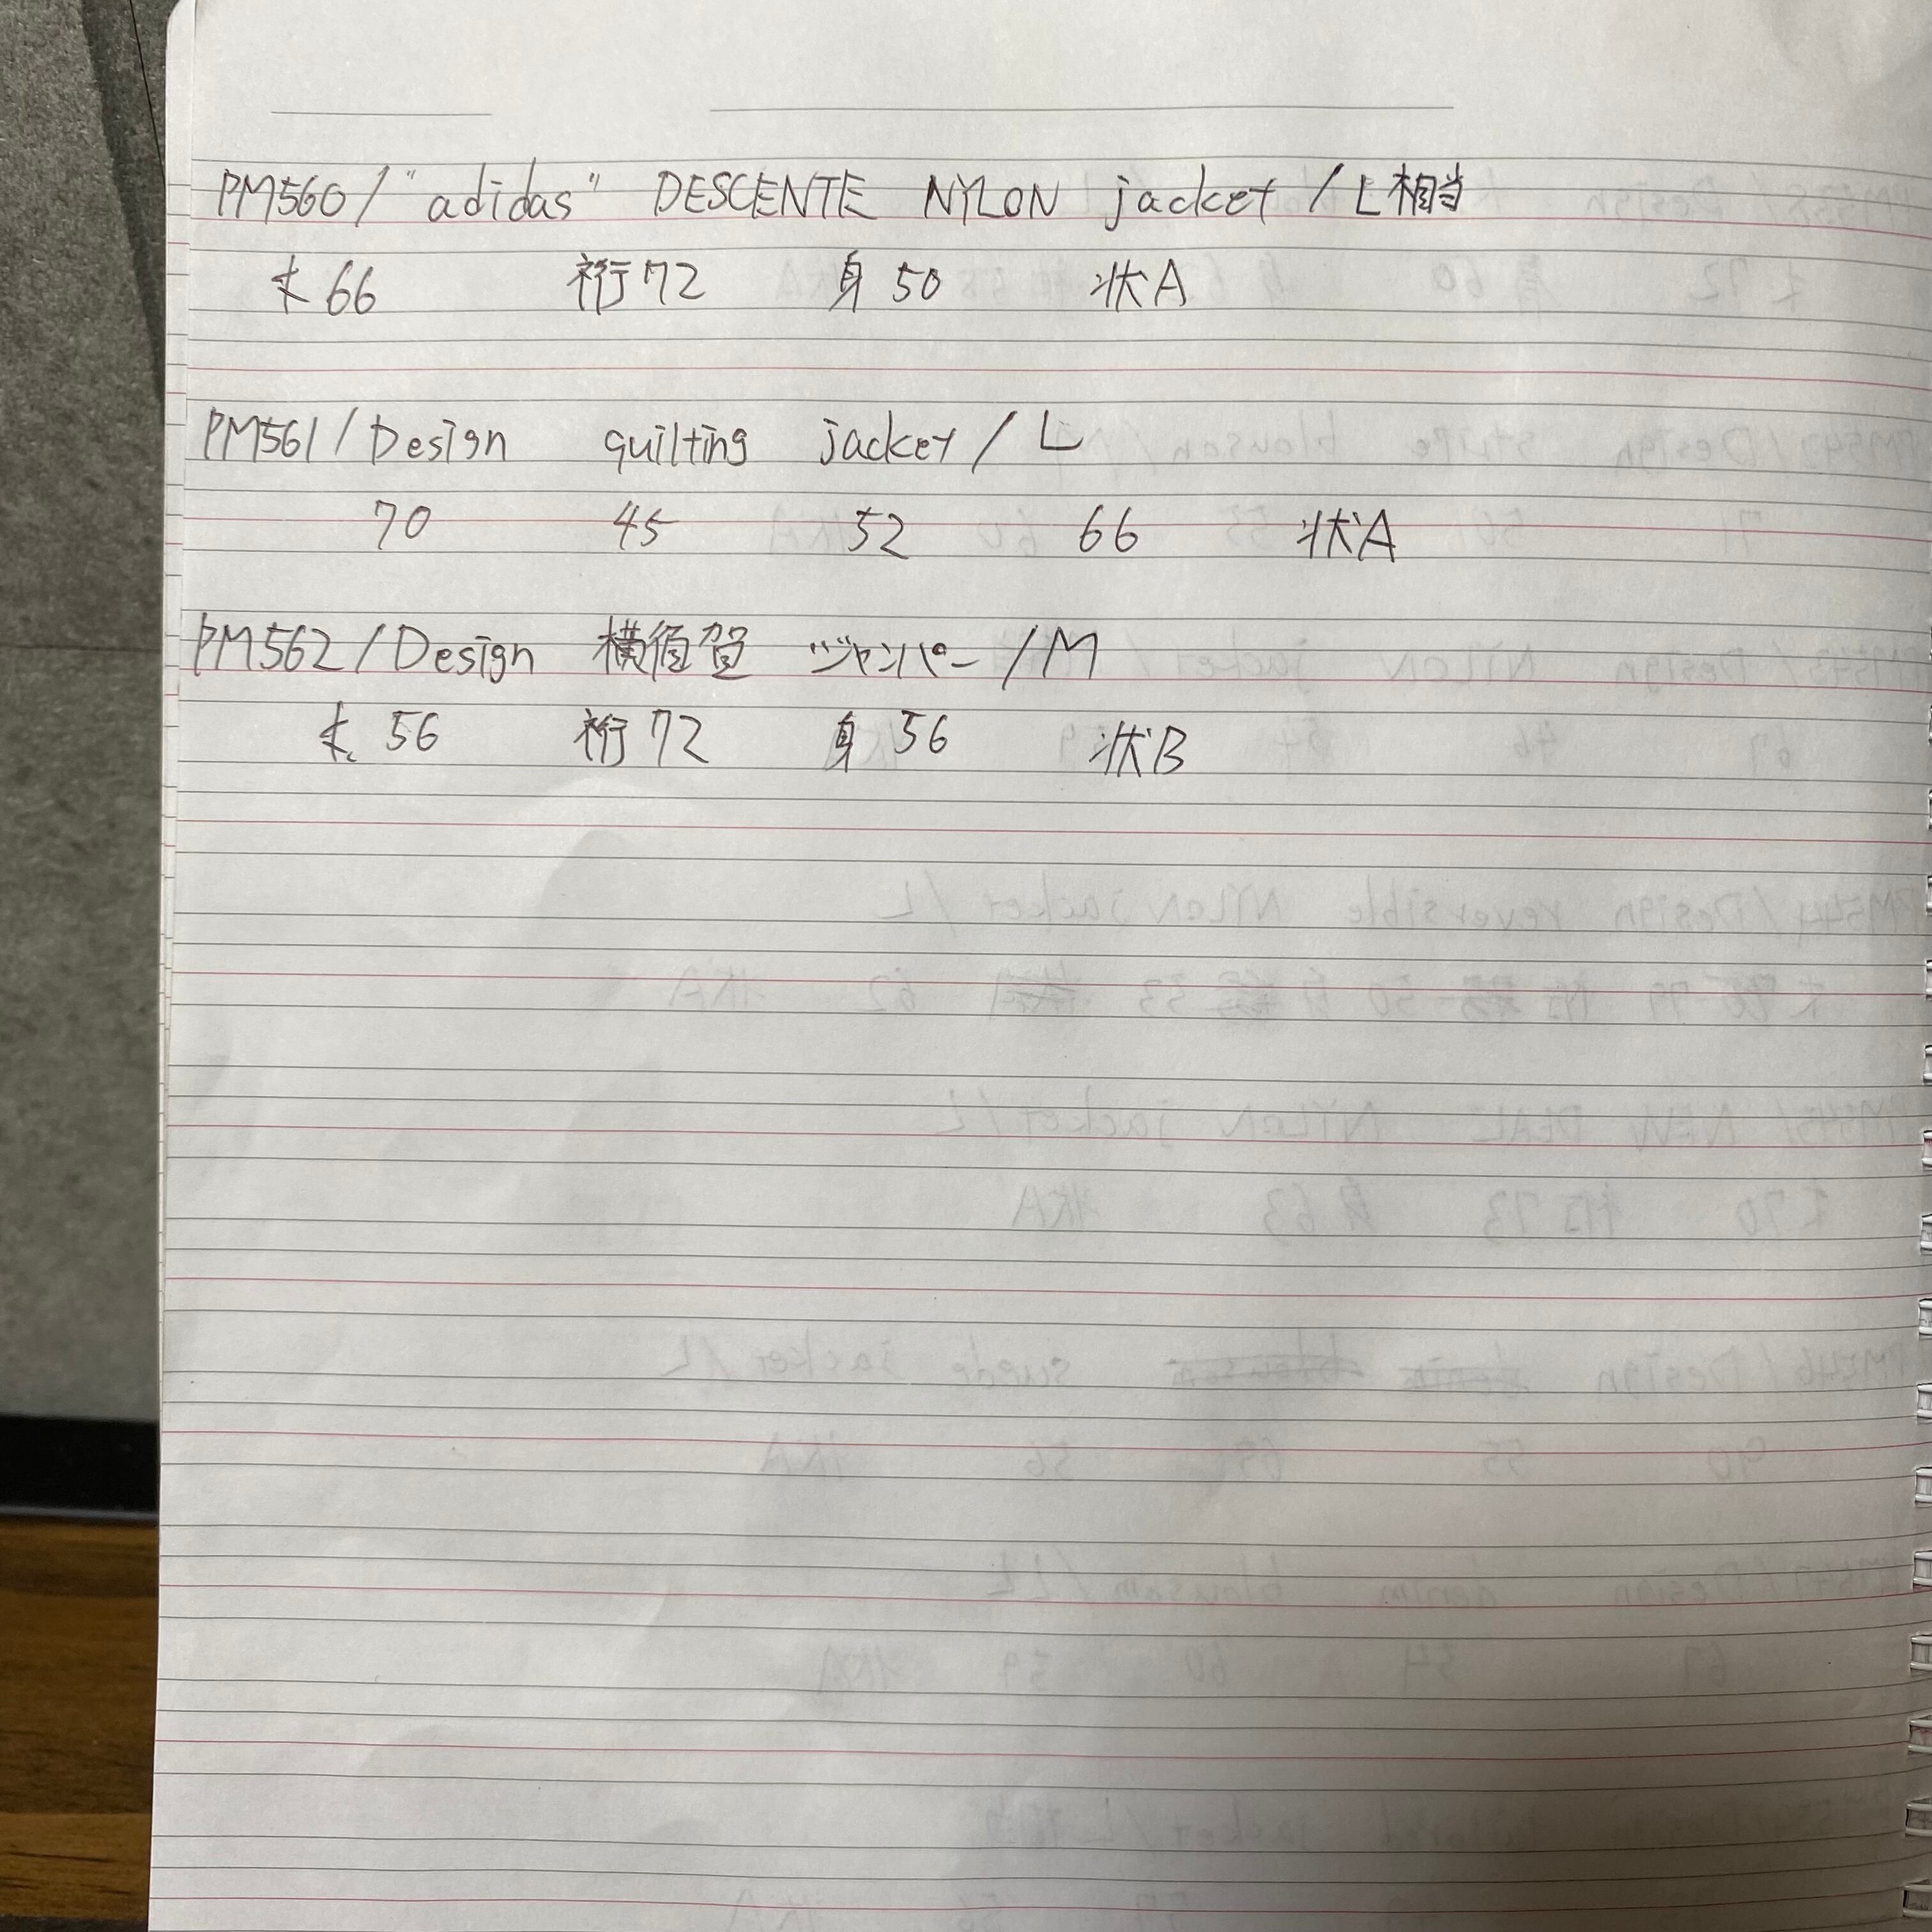 PM560/"adidas" DESCENTE NYLON jacket/L相当
丈66 裄72 身50 状A
PM561/Design quilting jacket/L
70 45 52 66 状A
PM562/Design 横須賀 ジャンパー/M
丈56 裄72 身56 状B